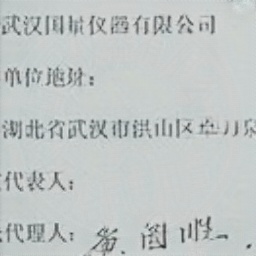 武汉国量仪器有限公司
单位地址：
湖北省武汉市洪山区卓刀泉
代表人：
代理人：